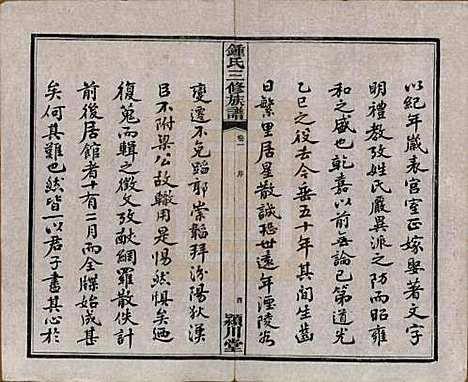 以紀年歲表官室正嫁娶著文字
明禮教攷姓氏嚴異派之防而昭雍
和之盛也乾嘉以前無論已第道光
乙巳之役去今垂五十年其間生齒
日繁里居星散誠恐世遠年湮陵谷
鍾氏三修族譜
卷一 序
四
潁川堂
變遷不免蹈耶崇韜拜汾陽狄漢
臣不附梁公故轍用是惕然懼矣迺
復蒐而輯之徵文攷獻網羅散佚計
前後居館者十有二月而全牒始成甚
矣何其難也然皆一以君子書其心於